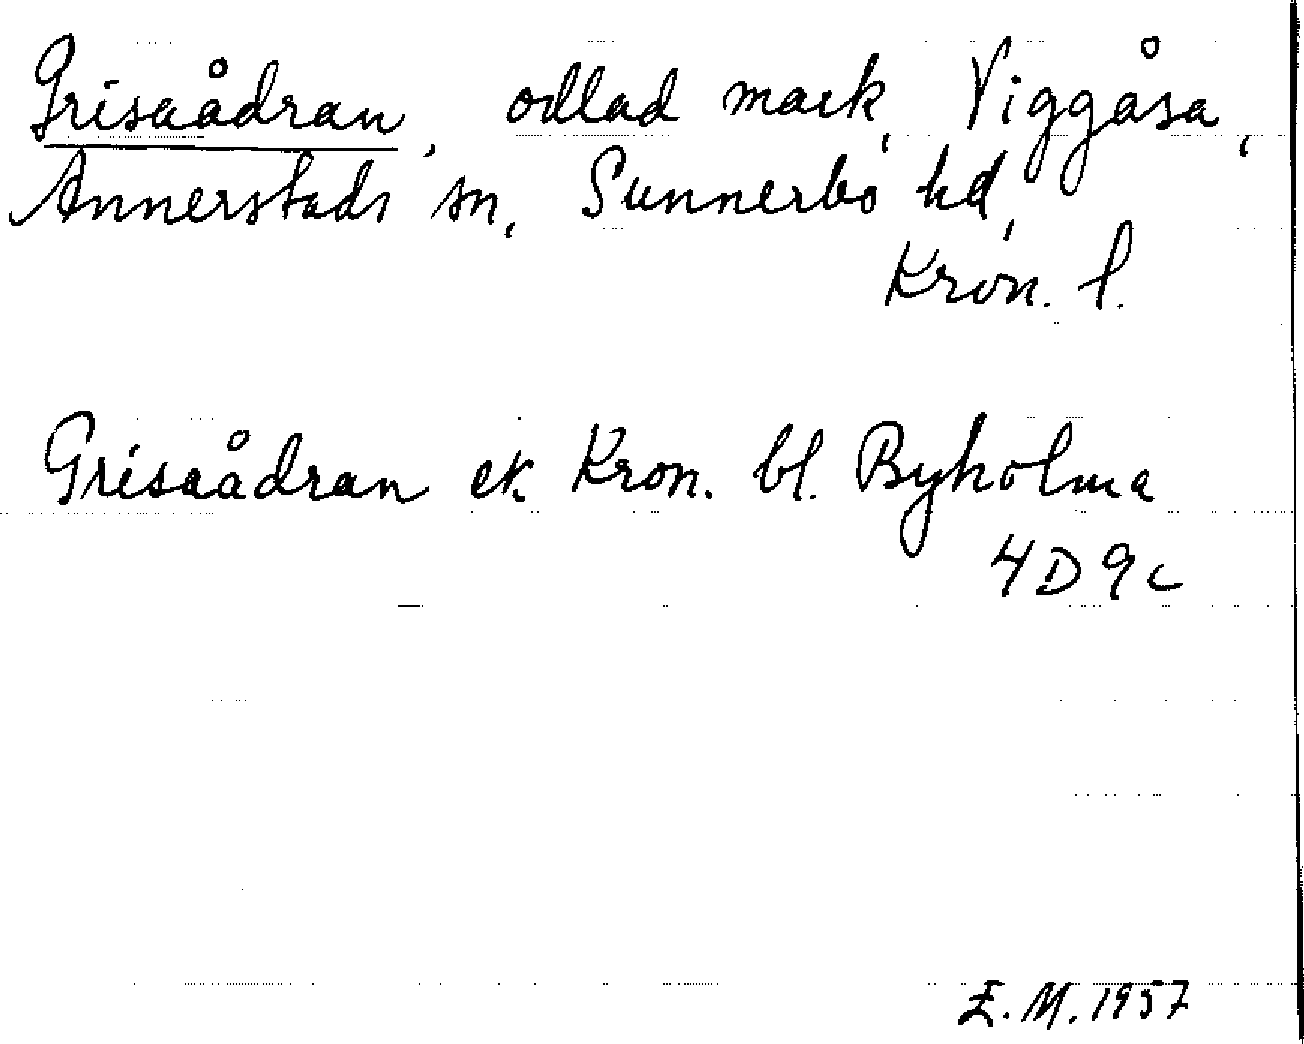 Grisaådran, odlad mark, Viggåsa,
Annerstads sn, Sunnerbo hd,
Kron. l.
Grisaådran ek. Kron. bl. Byholma
4D9c
E. M. 1957